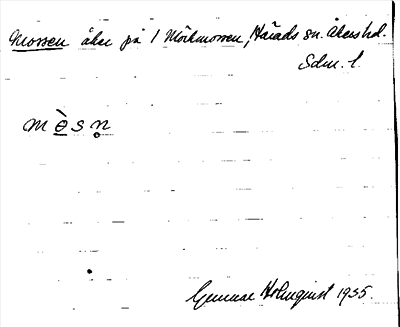 Mossen åker på 1 Mörkmossen, Härads sn. Åkers hd.
Sdm. l.
m ɵ̀ s n̥
Gunnar Holmquist 1935.